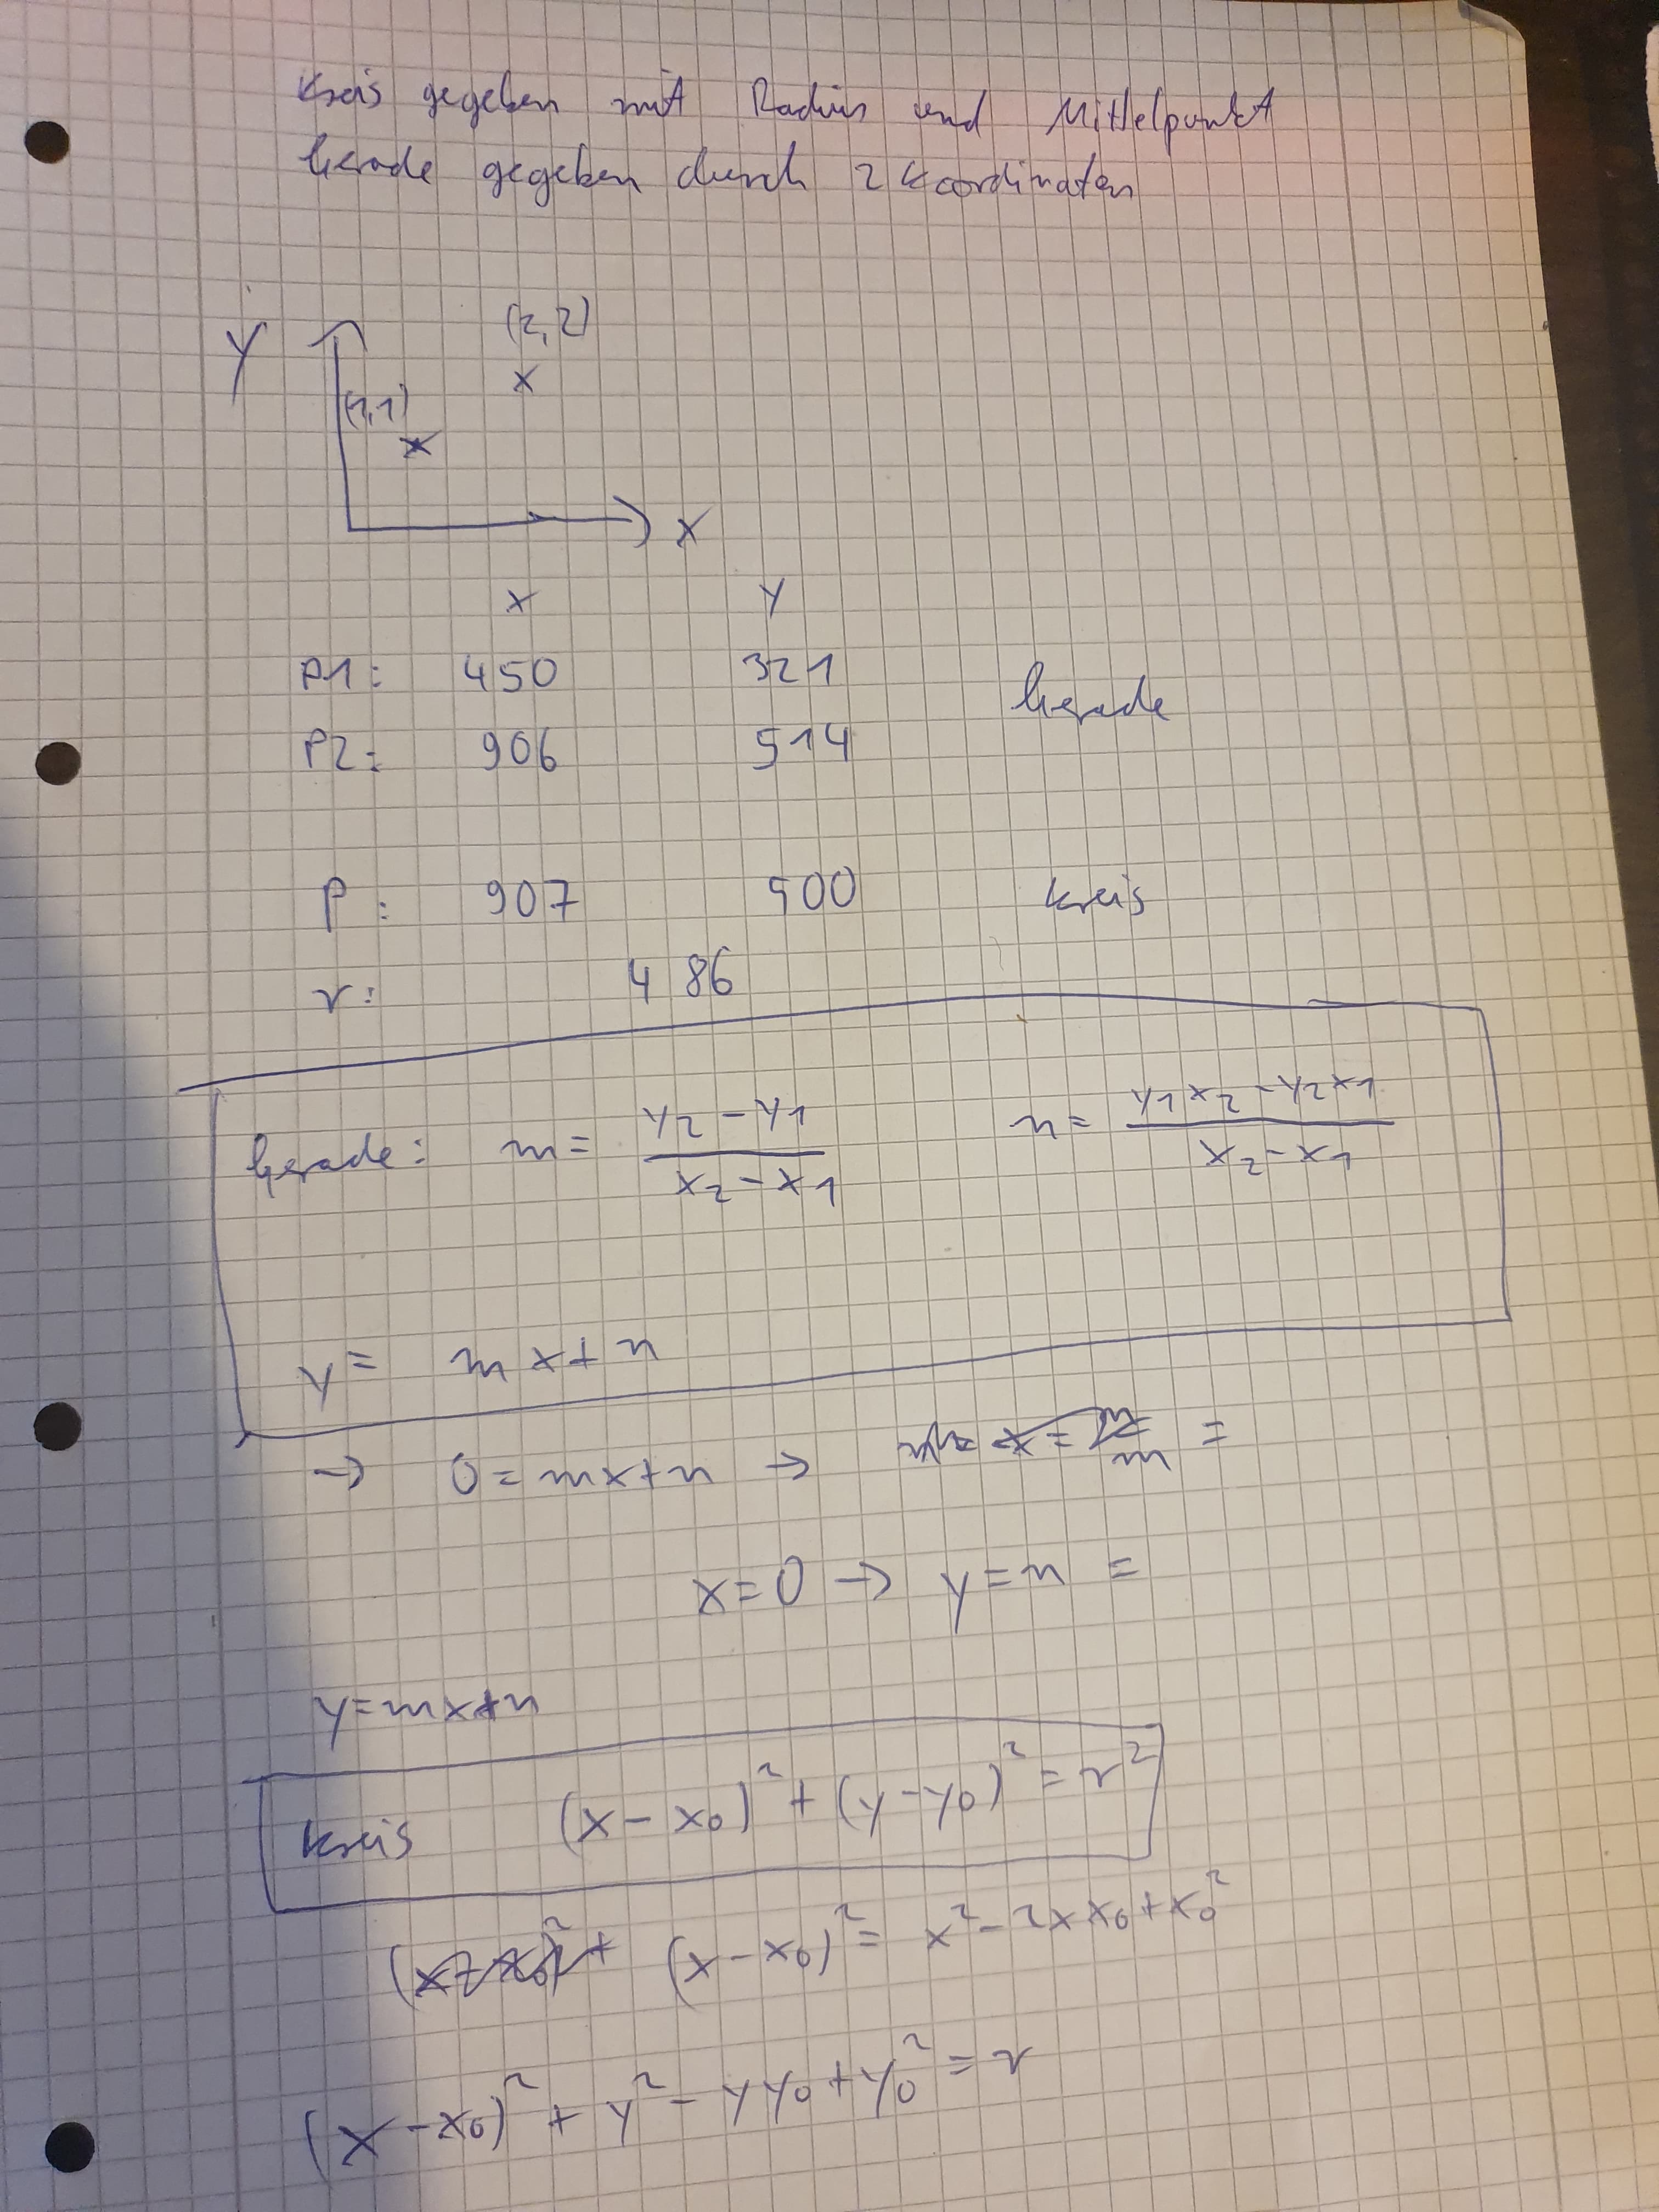 Kreis gegeben mit Radius und Mittelpunkt
Gerade gegeben durch 2 Koordinaten
(2,2)
Y
x
(1,1)
x
X
x y
P1: 450 321
Gerade
P2: 906 514
P: 907 500 Kreis
r: 486
Gerade: m = (y₂ - y₁)/(x₂ - x₁) n = (y₁x₂ - y₂x₁)/(x₂ - x₁)
y = mx + n
→ 0 = mx + n → x = n/m =
x = 0 → y = n =
y = mx + n
Kreis (x - x₀)² + (y - y₀)² = r²
(x - x₀)² + (x - x₀)² = x² - 2xx₀ + x₀²
(x - x₀)² + y² - yy₀ + y₀² = r